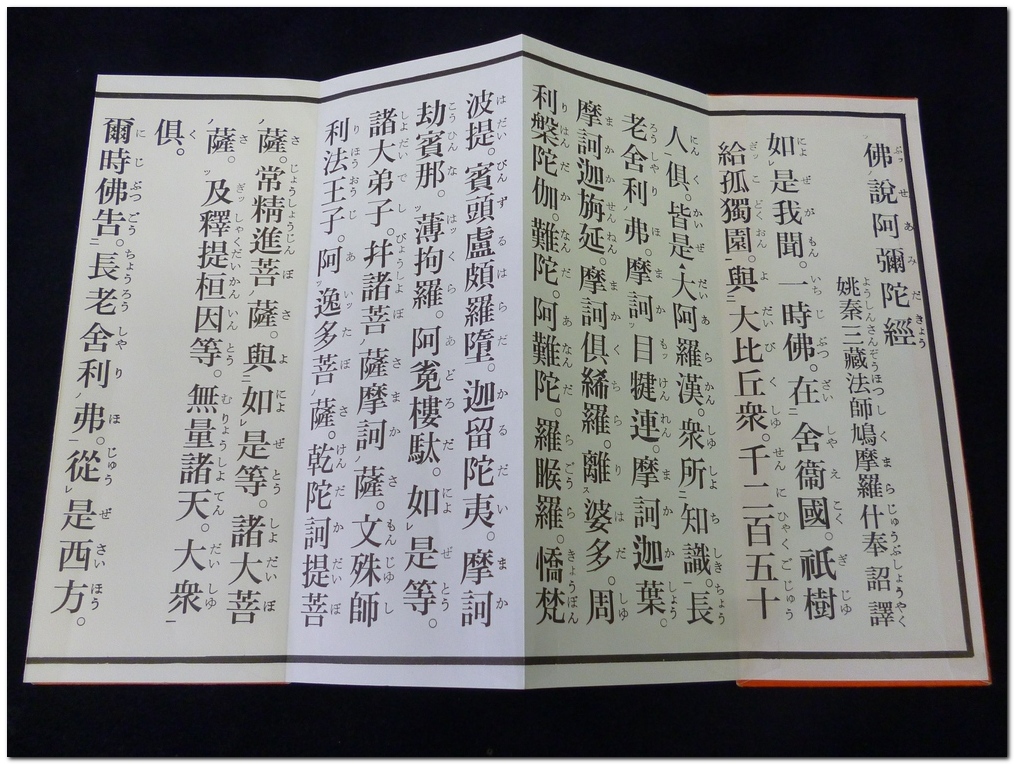 佛說阿彌陀經
姚秦三藏法師鳩摩羅什奉詔譯
如是我聞。一時佛。在舍衞國。祇樹
給孤獨園。與大比丘衆。千二百五十
人俱。皆是大阿羅漢。衆所知識。長
老舍利弗。摩訶目犍連。摩訶迦葉。
摩訶迦旃延。摩訶俱絺羅。離婆多。周
利槃陀伽。難陀。阿難陀。羅睺羅。憍梵
波提。賓頭盧頗羅墮。迦留陀夷。摩訶
劫賓那。薄拘羅。阿㝹樓駄。如是等。
諸大弟子。幷諸菩薩摩訶薩。文殊師
利法王子。阿逸多菩薩。乾陀訶提菩
薩。常精進菩薩。與如是等。諸大菩
薩。及釋提桓因等。無量諸天。大衆
俱。
爾時佛告。長老舍利弗。從是西方。